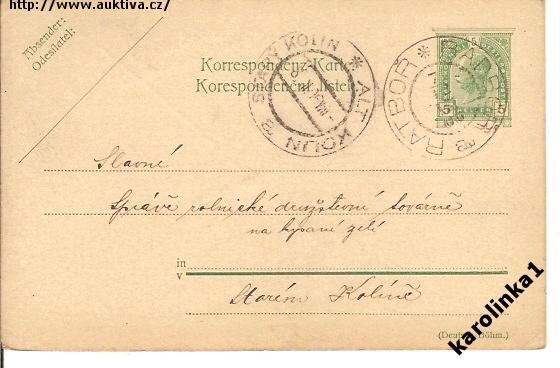 http://www.auktiva.cz/
Absender:
Odesílatel:
Korrespondenz-Karte
Korespondenční lístek
STARÝ KOLÍN * ALT KOLIN
RATBOŘ * RATBOR
5 5
Slavné
Správě rolnické družstevní továrně
na kysané zelí
in
v
Starém Kolíně
(Deutsch-Böhm.)
karolinka1